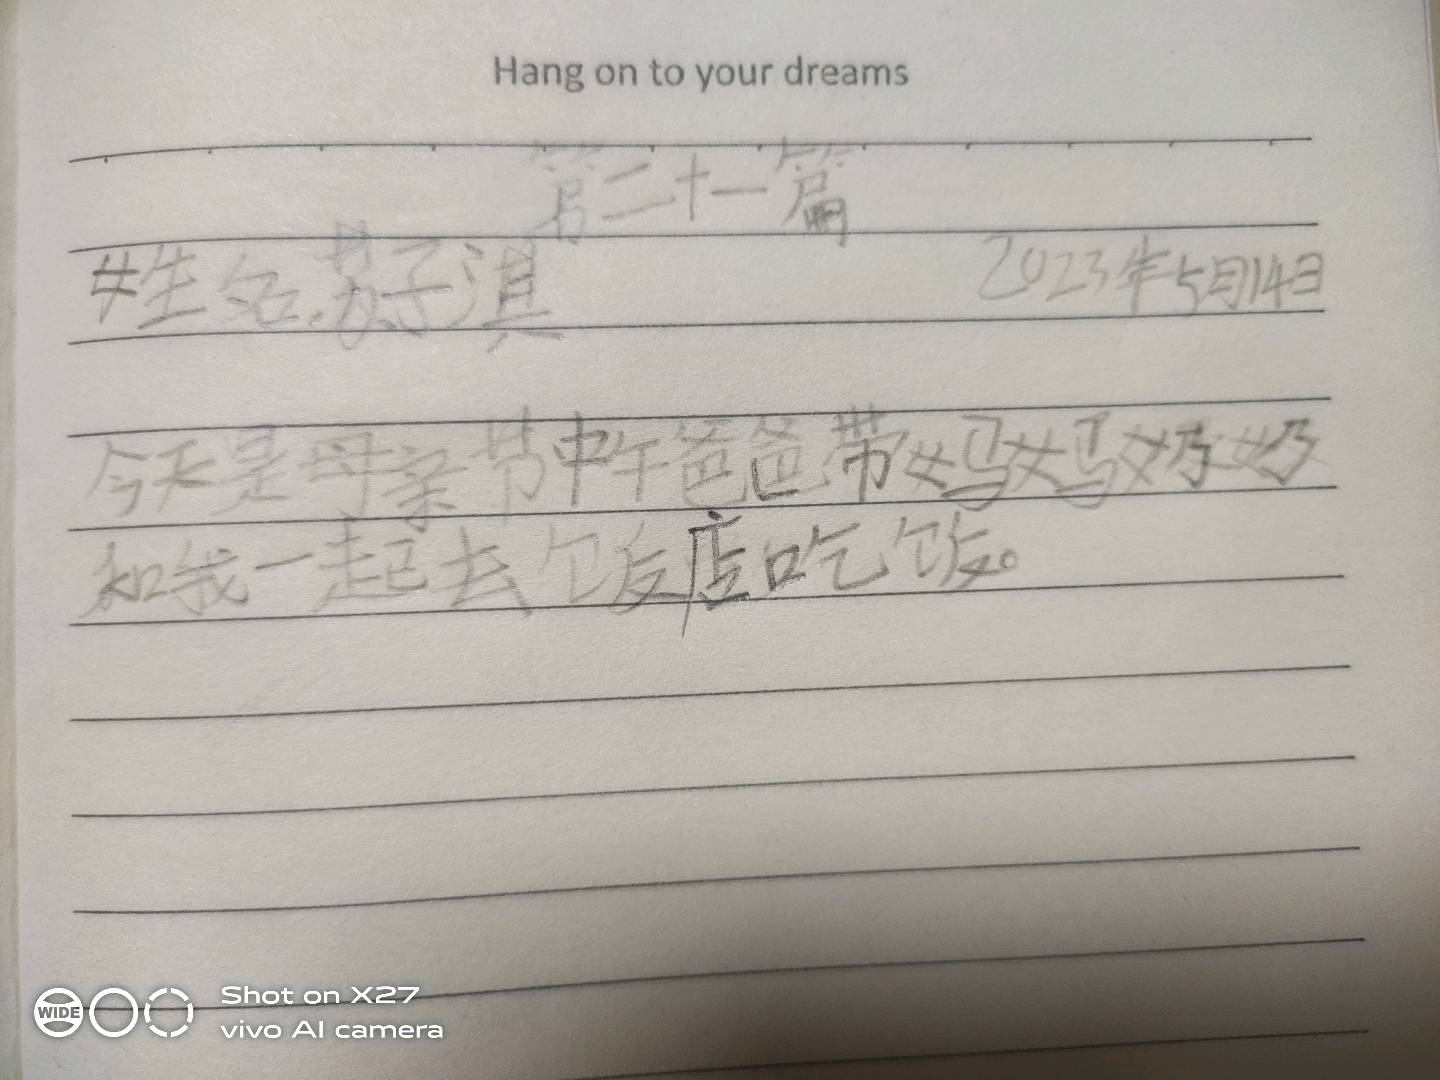 Hang on to your dreams
第二十一篇
姓名.苏子淇 2023年5月14日
今天是母亲节中午爸爸带妈妈奶奶
和我一起去饭店吃饭。
WIDE Shot on X27
vivo AI camera